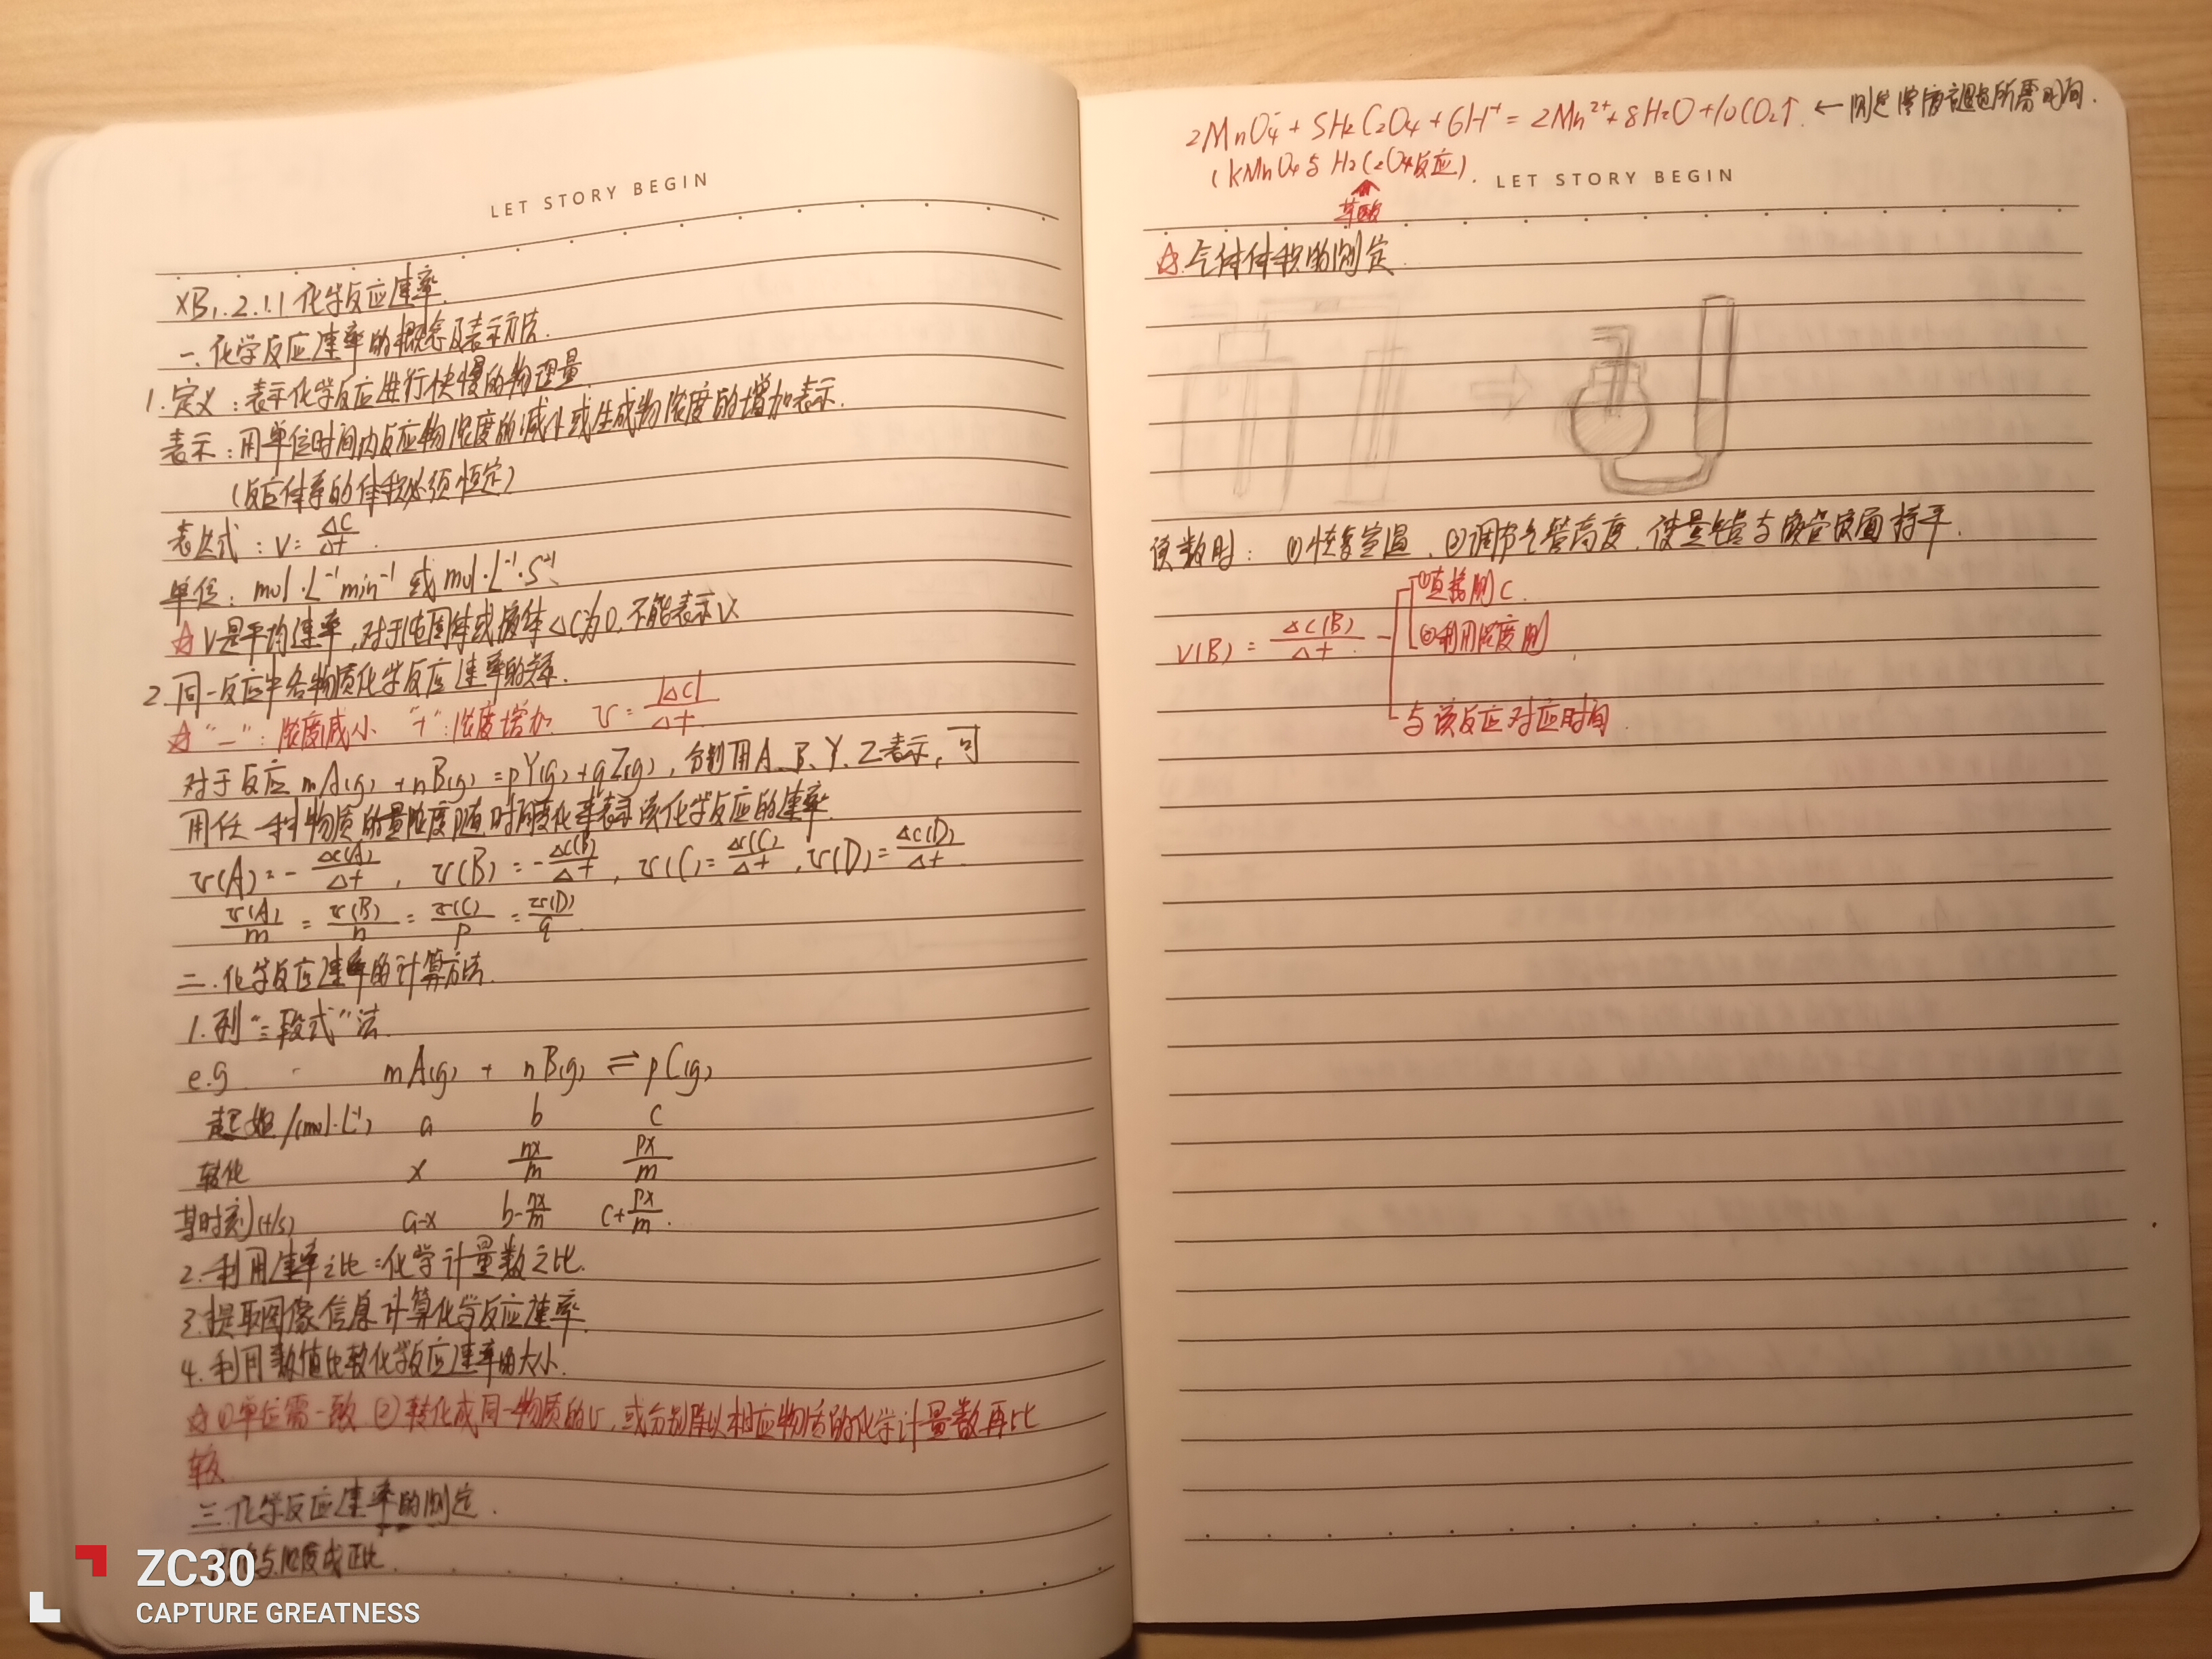 LET STORY BEGIN
XB1.2.1.1 化学反应速率.
一.化学反应速率的概念及表示方法.
1.定义：表示化学反应进行快慢的物理量.
表示：用单位时间内反应物浓度的减小或生成物浓度的增加表示.
(反应体系的体积必须恒定)
表达式：V=ΔC/Δt.
单位：mol·L⁻¹min⁻¹ 或 mol·L⁻¹·S⁻¹.
☆V是平均速率,对于纯固体或液体ΔC为0,不能表示V.
2.同一反应中各物质化学反应速率的关系.
☆"−"：浓度减小 "+"：浓度增加 v=|ΔC|/Δt
对于反应mA(g)+nB(g)=pY(g)+qZ(g),分别用A、B、Y、Z表示,可
用任一种物质的量浓度随时间变化来表示该化学反应的速率.
v(A)=-Δc(A)/Δt, v(B)=-Δc(B)/Δt, v(C)=Δc(C)/Δt, v(D)=Δc(D)/Δt.
v(A)/m=v(B)/n=v(C)/p=v(D)/q
二.化学反应速率的计算方法.
1.列"三段式"法.
e.g. mA(g) + nB(g) ⇌ pC(g)
起始/(mol·L⁻¹) a b c
转化 x nx/m px/m
某时刻(t/s) a-x b-nx/m c+px/m.
2.利用速率之比=化学计量数之比.
3.提取图像信息计算化学反应速率.
4.利用数值比较化学反应速率的大小.
☆①单位需一致 ②转化成同一物质的v,或分别除以相应物质的化学计量数再比
较.
三.化学反应速率的测定.
与浓度成正比.
ZC30
CAPTURE GREATNESS
2MnO₄⁻+5H₂C₂O₄+6H⁺=2Mn²⁺+8H₂O+10CO₂↑. ←测定溶液褪色所需时间.
(KMnO₄与H₂C₂O₄反应).
草酸
LET STORY BEGIN
☆.气体体积的测定.
读数时：①恢复室温.②调节气管高度.使量气管与液面持平.
①直接测C.
V(B)=Δc(B)/Δt ②利用浓度测
与该反应对应时间.